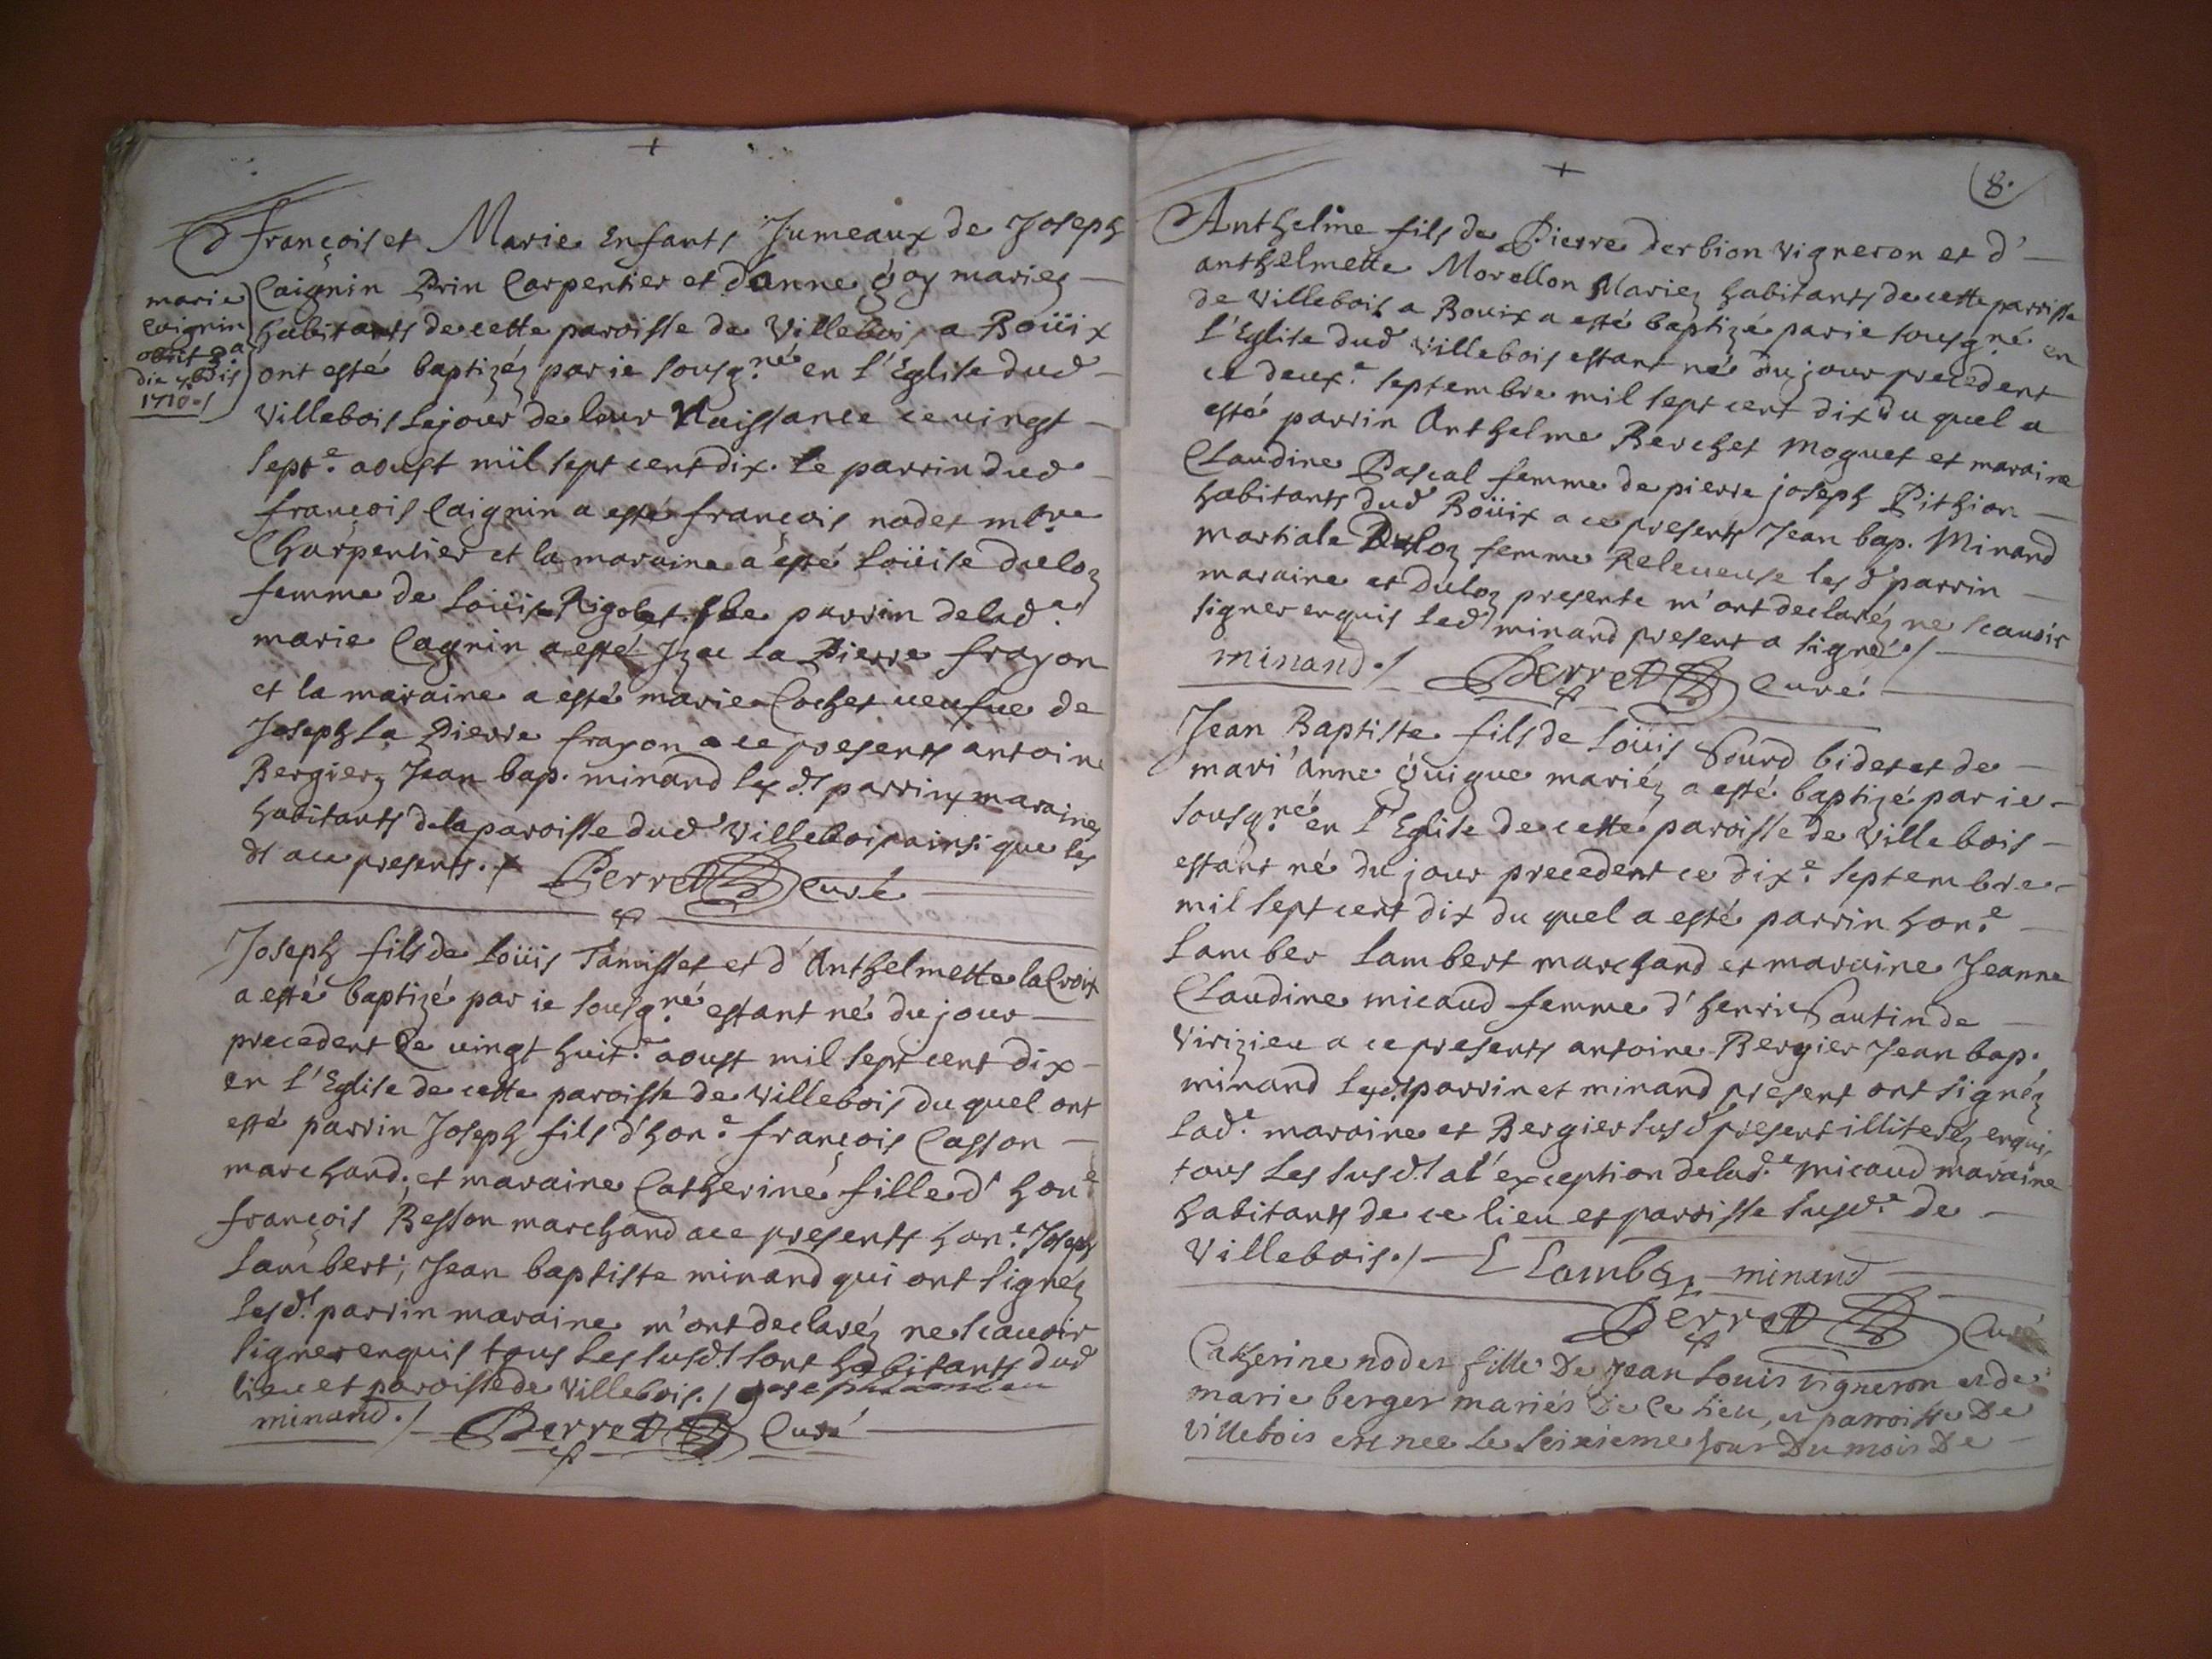 François et Marie Enfants Jumeaux de Joseph
Caignin Prin Carpentier et d'anne goy mariez
habitants de cette paroisse de Villebois a Boüix
ont esté baptizéz par ie sousg.né en l'Eglise dud
Villebois le jour de leur Naissance ce vingt
sept.e aoust mil sept cent dix. le parrin dud
françois Caignin a esté françois nodet m.re
Charpentier et la maraine a esté Loüise duloz
femme de Loüis Rigolet le parrin de lad.
marie Cagnin a esté Izac La Pierre frayon
et la maraine a esté marie Cochet veufue de
Joseph La Pierre frayon a ce presents antoine
Bergier, Jean bap. minand les d.t parrins maraines
habitants de la paroisse dud Villebois ainsi que les
dt a ce presents. Perret Curé
marie
Caignin
obiit 2a
die 7bris
1710
Joseph fils de Loüis Tamisset et d'Anthelmette la Croix
a esté baptizé par ie sousg.né estant né du jour
precedent Ce vingt huit.e aoust mil sept cent dix
en l'Eglise de cette paroisse de Villebois du quel ont
esté parrin Joseph fils d'hon.e françois Casson
marchand; et maraine Catherine fille d'hon.e
françois Besson marchand a ce presents hon.e Joseph
Lambert, Jean baptiste minand qui ont signéz
lesd.t parrin maraine m'ont declaréz ne scauoir
signer enquis tous les susd.t sont habitants dud
lieu et paroisse de Villebois./
minand./ Perret Curé
8.
Anthelme fils de Pierre derbion vigneron et d'
anthelmette Morellon Mariez habitants de cette parrisse
de Villebois a Bouix a esté baptizé par ie sousg.né en
l'Eglise dud Villebois estant né du jour precedent
ce deux.e septembre mil sept cent dix du quel a
esté parrin Anthelme Berchet Moguet et maraine
Claudine Pascal femme de pierre joseph Pithion
habitants dud Boüix a ce presents Jean bap. Minand
martiale Duloz femme Releueuse les d.t parrin
maraine et Duloz presente m'ont declaréz ne scauoir
signer enquis led minand present a signé./
minand./ Perret Curé
Jean Baptiste fils de Loüis Sourd bidet et de
mari'anne Guigue mariéz a esté baptizé par ie
sousg.né en l'Eglise de cette paroisse de Villebois
estant né du jour precedent ce dix.e septembre
mil sept cent dix du quel a esté parrin hon.e
Lamber Lambert marchand et maraine Jeanne
Claudine micaud femme d'henri Sautin de
Virizieu a ce presents antoine Bergier Jean bap.
minand lesd.t parrin et minand present ont signéz
lad.e maraine et Bergier susd present illiteréz enquis,
tous les susd.t a l'exception de lad.e micaud maraine
habitants de ce lieu et parroisse susd.e de
Villebois./ L Lambert minand
Perret Curé
Catherine nodet fille De Jean Louis vigneron et de
marie berger mariés De Ce lieu, et parroisse De
Villebois est nee le seixieme jour Du mois De